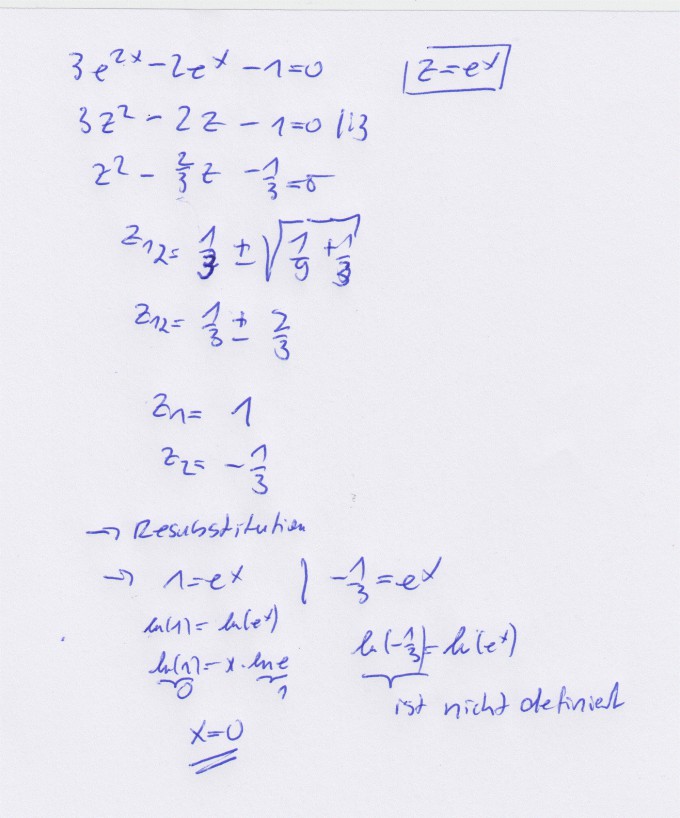 3e^{2x} - 2e^x - 1 = 0   z = e^x
3z² - 2z - 1 = 0 |:3
z² - 2/3 z - 1/3 = 0
z₁₂ = 1/3 ± √(1/9 + 1/3)
z₁₂ = 1/3 ± 2/3
z₁ = 1
z₂ = -1/3
→ Resubstitution
→ 1 = e^x | -1/3 = e^x
ln(1) = ln(e^x)   ln(-1/3) = ln(e^x)
ln(1) = x · ln e   ist nicht definiert
0   1
x = 0